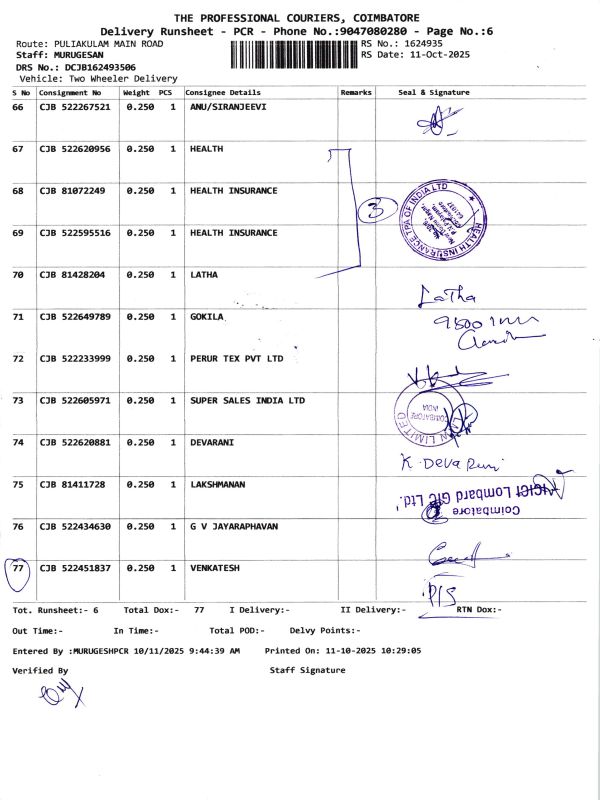 THE PROFESSIONAL COURIERS, COIMBATORE
Delivery Runsheet - PCR - Phone No.:9047080280 - Page No.:6
Route: PULIAKULAM MAIN ROAD
RS No.: 1624935
Staff: MURUGESAN
RS Date: 11-Oct-2025
DRS No.: DCJB162493506
Vehicle: Two Wheeler Delivery
S No Consignment No Weight PCS Consignee Details Remarks Seal & Signature
66 CJB 522267521 0.250 1 ANU/SIRANJEEVI
67 CJB 522620956 0.250 1 HEALTH
68 CJB 81072249 0.250 1 HEALTH INSURANCE
3
HEALTH INSURANCE TPA OF INDIA LTD
69 CJB 522595516 0.250 1 HEALTH INSURANCE
70 CJB 81428204 0.250 1 LATHA
Latha
71 CJB 522649789 0.250 1 GOKILA
72 CJB 522233999 0.250 1 PERUR TEX PVT LTD
73 CJB 522605971 0.250 1 SUPER SALES INDIA LTD
LIMITED
COIMBATORE
INDIA
74 CJB 522620881 0.250 1 DEVARANI
K. Deva Rani
75 CJB 81411728 0.250 1 LAKSHMANAN
ICICI Lombard GIC Ltd.
Coimbatore
76 CJB 522434630 0.250 1 G V JAYARAPHAVAN
77 CJB 522451837 0.250 1 VENKATESH
P/S
Tot. Runsheet:- 6 Total Dox:- 77 I Delivery:- II Delivery:- RTN Dox:-
Out Time:- In Time:- Total POD:- Delvy Points:-
Entered By :MURUGESHPCR 10/11/2025 9:44:39 AM Printed On: 11-10-2025 10:29:05
Verified By Staff Signature